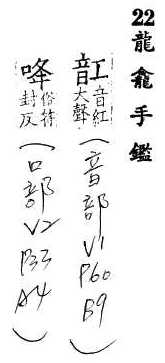 22龍龕手鑑
䪦音紅大聲(音部V1P60B9)
唪俗符封反(口部V2P33A4)